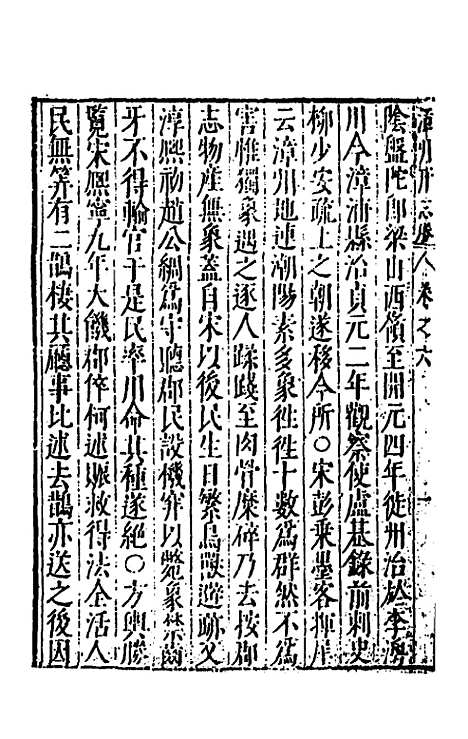 漳州府志卷八 卷之六
陰盤陀郎梁山西嶺至開元四年徙州治於李澳
川今漳浦縣治貞元二年觀察使盧惎錄前刺史
柳少安疏上之朝遂移今所○宋彭乘墨客揮犀
云漳州地連潮陽素多象徃徃十數為群然不為
害惟獨象遇之逐人蹂踐至肉骨糜碎乃去按郡
志物產無象蓋自宋以後民生日繁鳥獸避跡又
淳熙初趙公綢為守聽郡民設機穽以斃象禁齒
牙不得輸官于是民率用命其種遂絕○方輿勝
覽宋熙寧九年大饑郡倅何述賑救得法全活人
民無筭有二鵲棲其廳事比述去鵲亦送之後因